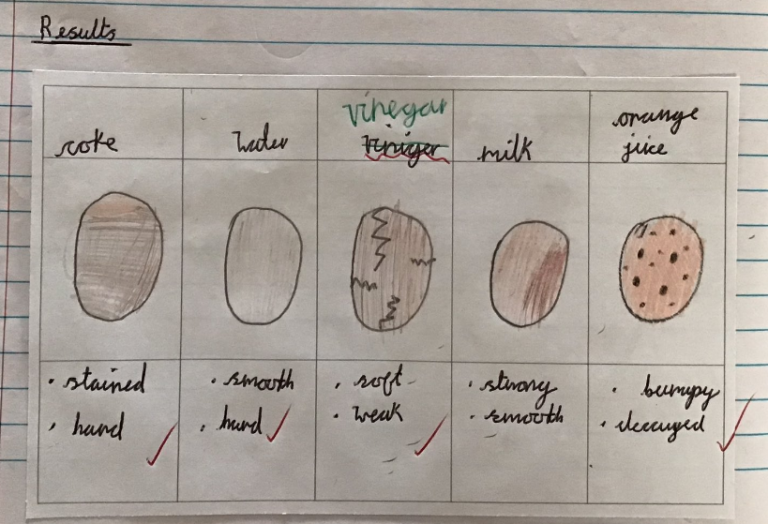 Results
coke
water
vinegar
viniger
milk
orange
juice
• stained
• hard
• smooth
• hard
• soft
• weak
• strong
• smooth
• bumpy
• decayed